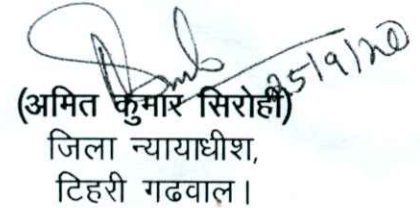 25/9/20
(अमित कुमार सिरोही)
जिला न्यायाधीश,
टिहरी गढवाल।